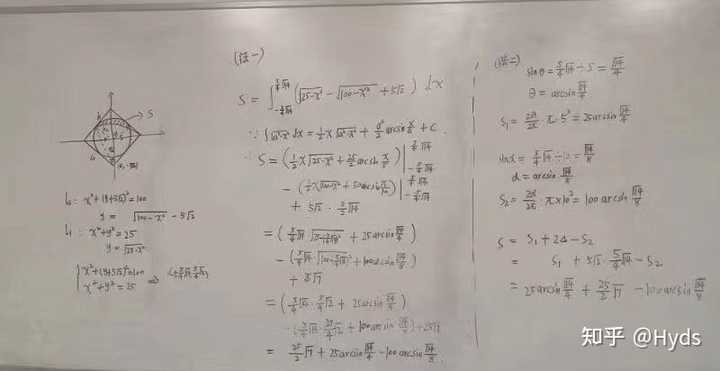 S
l₂: x²+(y+5√2)²=100
y = √(100-x²) - 5√2
l₁: x²+y²=25
y=√(25-x²)
{x²+(y+5√2)²=100
x²+y²=25 ⇒
(法一)
S = ∫_{-5/4√14}^{5/4√14} (√(25-x²) - √(100-x²) + 5√2) dx
∵ ∫√(a²-x²) dx = 1/2 x√(a²-x²) + a²/2 arcsin x/a + C.
∴ S = (1/2 x√(25-x²) + 25/2 arcsin x/5) |_{-5/4√14}^{5/4√14}
- (1/2 x√(100-x²) + 50 arcsin x/10) |_{-5/4√14}^{5/4√14}
+ 5√2 · 5/2√14
+ 25√7
= (5/4√14 · 5/4√2 + 25 arcsin √14/4)
= 25/2 √7 + 25 arcsin √14/4 - 100 arcsin √14/8.
(法二)
sinθ = 5/4√14 ÷ 5 = √14/4
θ = arcsin √14/4
S₁ = 2θ/2π · π · 5² = 25 arcsin √14/4
sinα = 5/4√14 ÷ 10 = √14/8
α = arcsin √14/8
S₂ = 2α/2π · π×10² = 100 arcsin √14/8
S = S₁ + 2Δ - S₂
= S₁ + 5√2 · 5/4√14 - S₂
= 25 arcsin √14/4 + 25/2 √7 - 100 arcsin √14/8
知乎 @Hyds